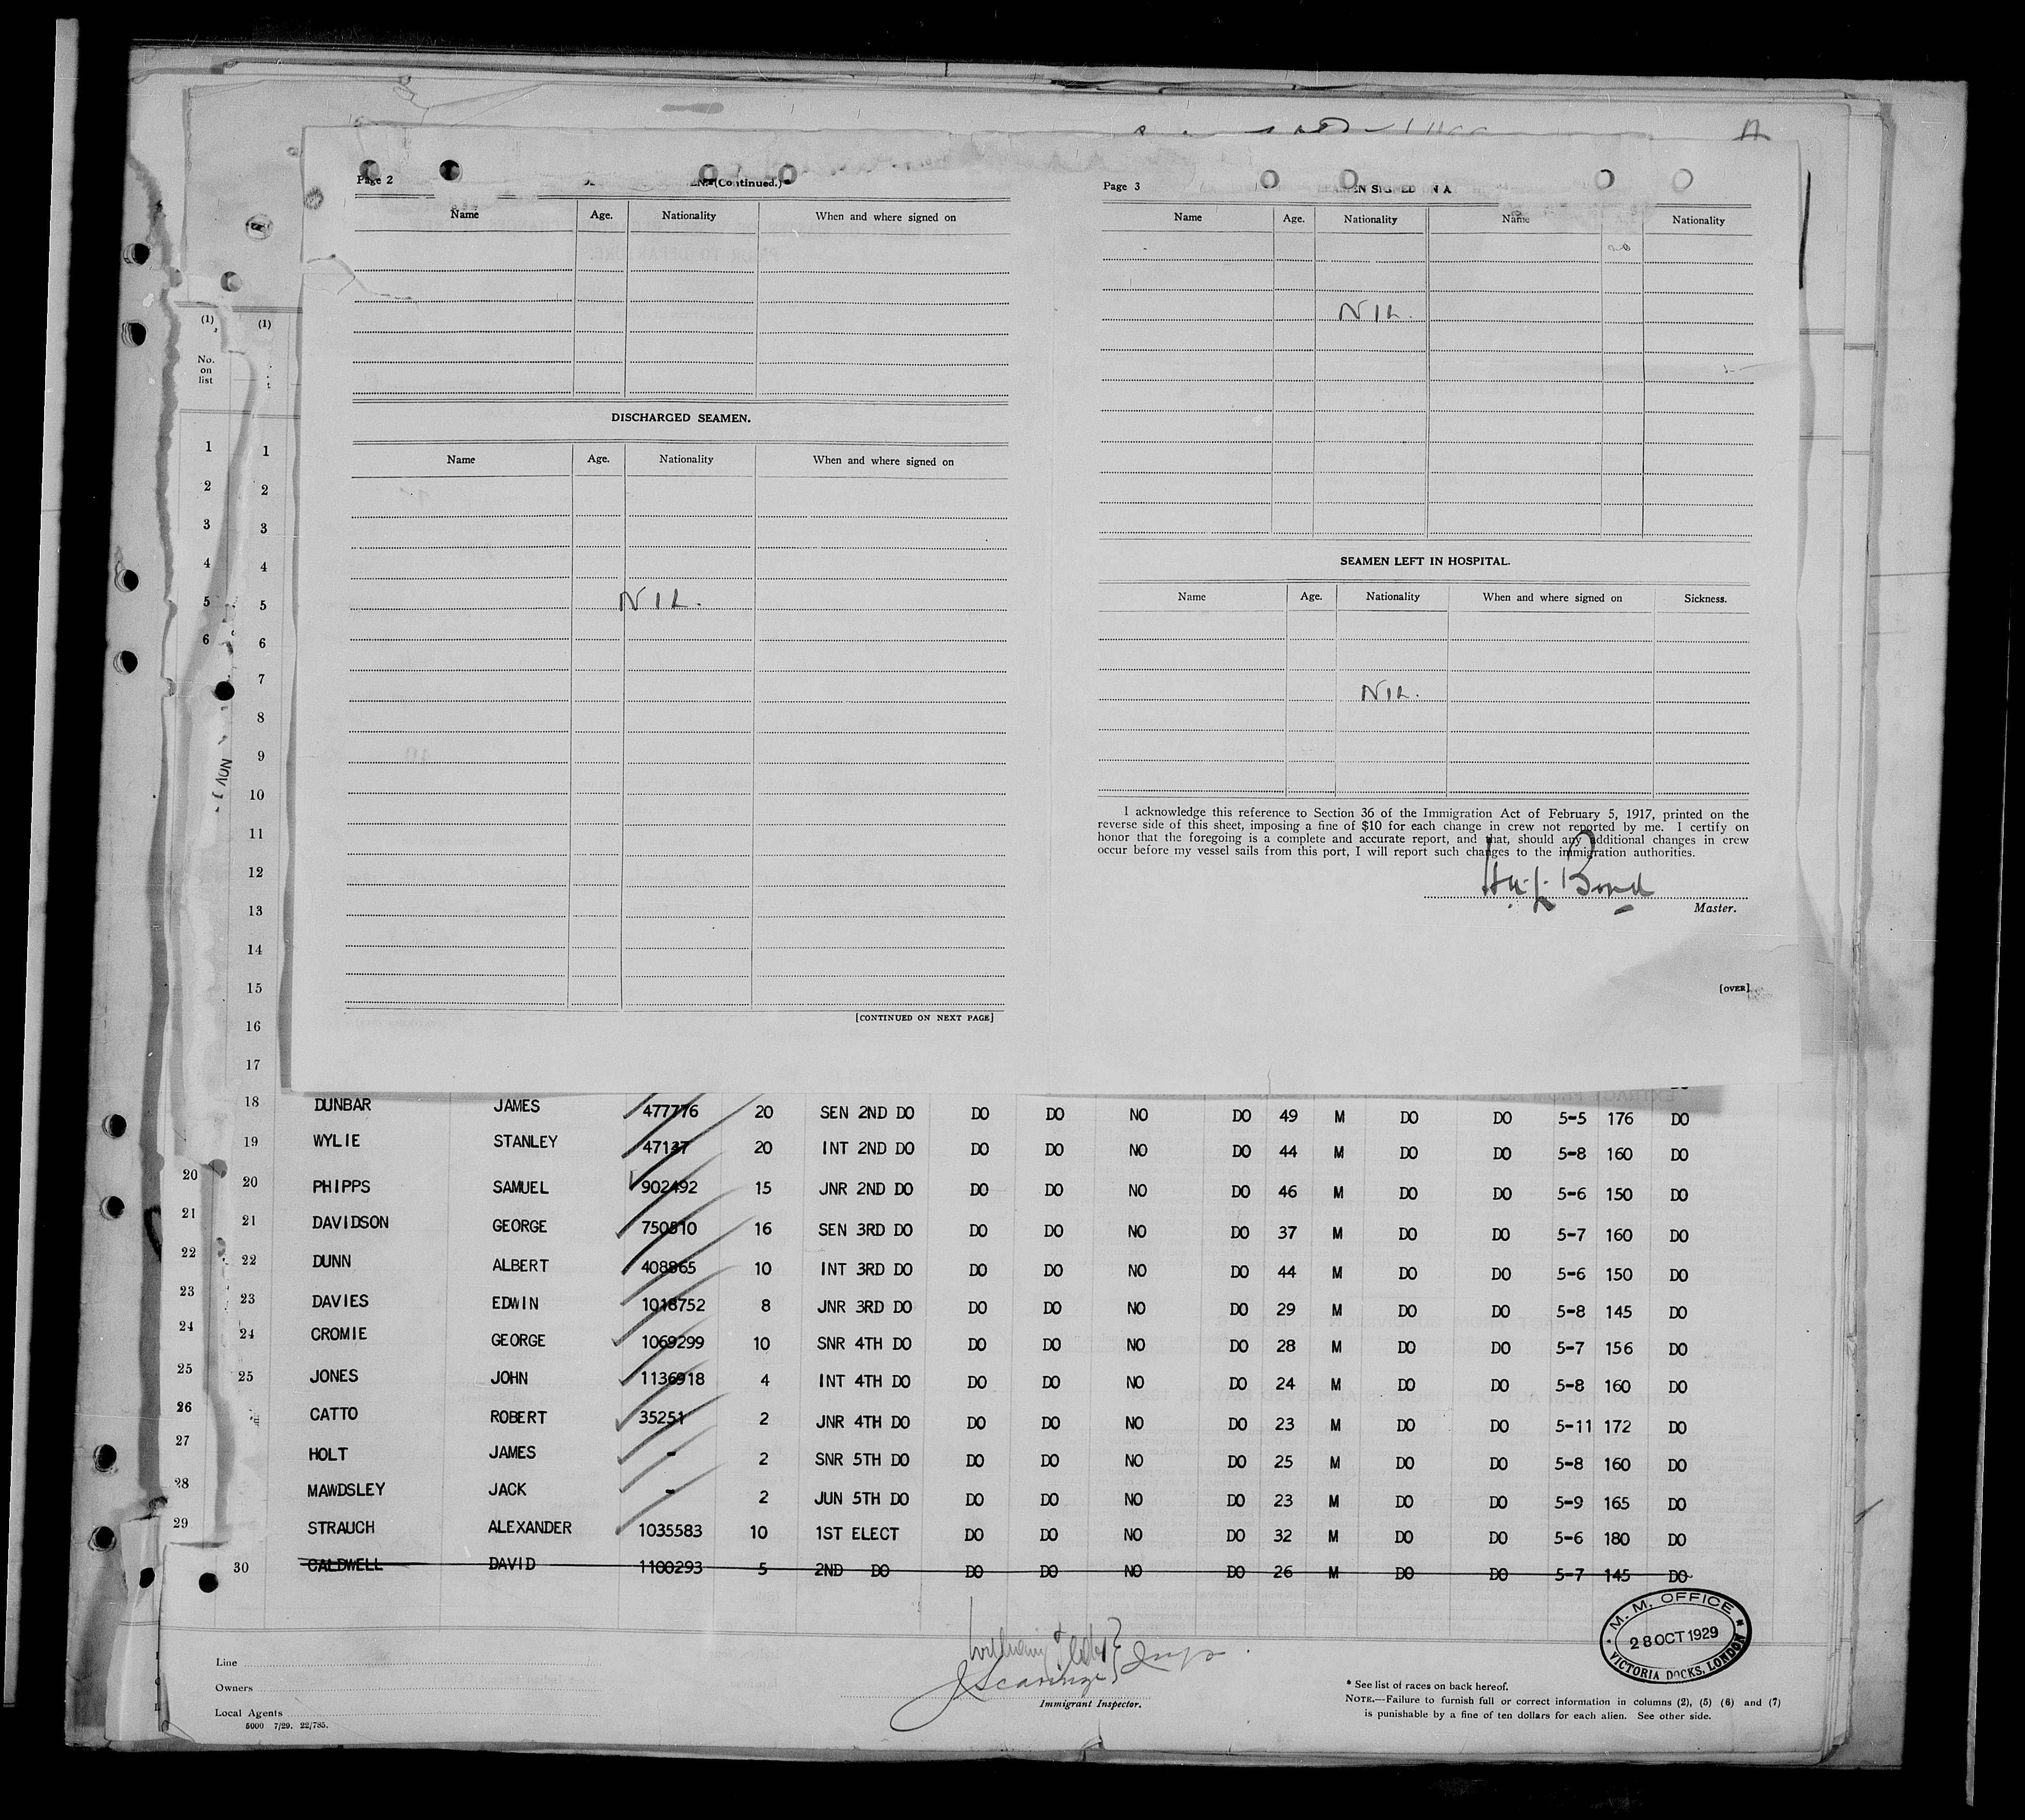 Page 2
(Continued.)
Name Age. Nationality When and where signed on
DISCHARGED SEAMEN.
Name Age. Nationality When and where signed on
NIL.
[CONTINUED ON NEXT PAGE]
Page 3
Name Age. Nationality Name Nationality
NIL.
SEAMEN LEFT IN HOSPITAL.
Name Age. Nationality When and where signed on Sickness.
NIL.
I acknowledge this reference to Section 36 of the Immigration Act of February 5, 1917, printed on the
reverse side of this sheet, imposing a fine of $10 for each change in crew not reported by me. I certify on
honor that the foregoing is a complete and accurate report, and that, should any additional changes in crew
occur before my vessel sails from this port, I will report such changes to the immigration authorities.
Bond
Master.
[OVER]
(1) (1)
No.
on
list
1 1
2 2
3 3
4 4
5 5
6 6
7
8
9
10
11
12
13
14
15
16
17
18 DUNBAR JAMES 477776 20 SEN 2ND DO DO DO NO DO 49 M DO DO 5-5 176 DO
19 WYLIE STANLEY 47137 20 INT 2ND DO DO DO NO DO 44 M DO DO 5-8 160 DO
20 20 PHIPPS SAMUEL 902492 15 JNR 2ND DO DO DO NO DO 46 M DO DO 5-6 150 DO
21 21 DAVIDSON GEORGE 750510 16 SEN 3RD DO DO DO NO DO 37 M DO DO 5-7 160 DO
22 22 DUNN ALBERT 408865 10 INT 3RD DO DO DO NO DO 44 M DO DO 5-6 150 DO
23 23 DAVIES EDWIN 1018752 8 JNR 3RD DO DO DO NO DO 29 M DO DO 5-8 145 DO
24 24 CROMIE GEORGE 1069299 10 SNR 4TH DO DO DO NO DO 28 M DO DO 5-7 156 DO
25 25 JONES JOHN 1136918 4 INT 4TH DO DO DO NO DO 24 M DO DO 5-8 160 DO
26 CATTO ROBERT 35251 2 JNR 4TH DO DO DO NO DO 23 M DO DO 5-11 172 DO
27 HOLT JAMES - 2 SNR 5TH DO DO DO NO DO 25 M DO DO 5-8 160 DO
28 MAWDSLEY JACK - 2 JUN 5TH DO DO DO NO DO 23 M DO DO 5-9 165 DO
29 STRAUCH ALEXANDER 1035583 10 1ST ELECT DO DO NO DO 32 M DO DO 5-6 180 DO
30 CALDWELL DAVID 1100293 5 2ND DO DO DO NO DO 26 M DO DO 5-7 145 DO
M. M. OFFICE
28 OCT 1929
VICTORIA DOCKS, LONDON
Line
Owners
Local Agents
5000 7/29. 22/785.
Immigrant Inspector.
* See list of races on back hereof.
NOTE.—Failure to furnish full or correct information in columns (2), (5) (6) and (7)
is punishable by a fine of ten dollars for each alien. See other side.